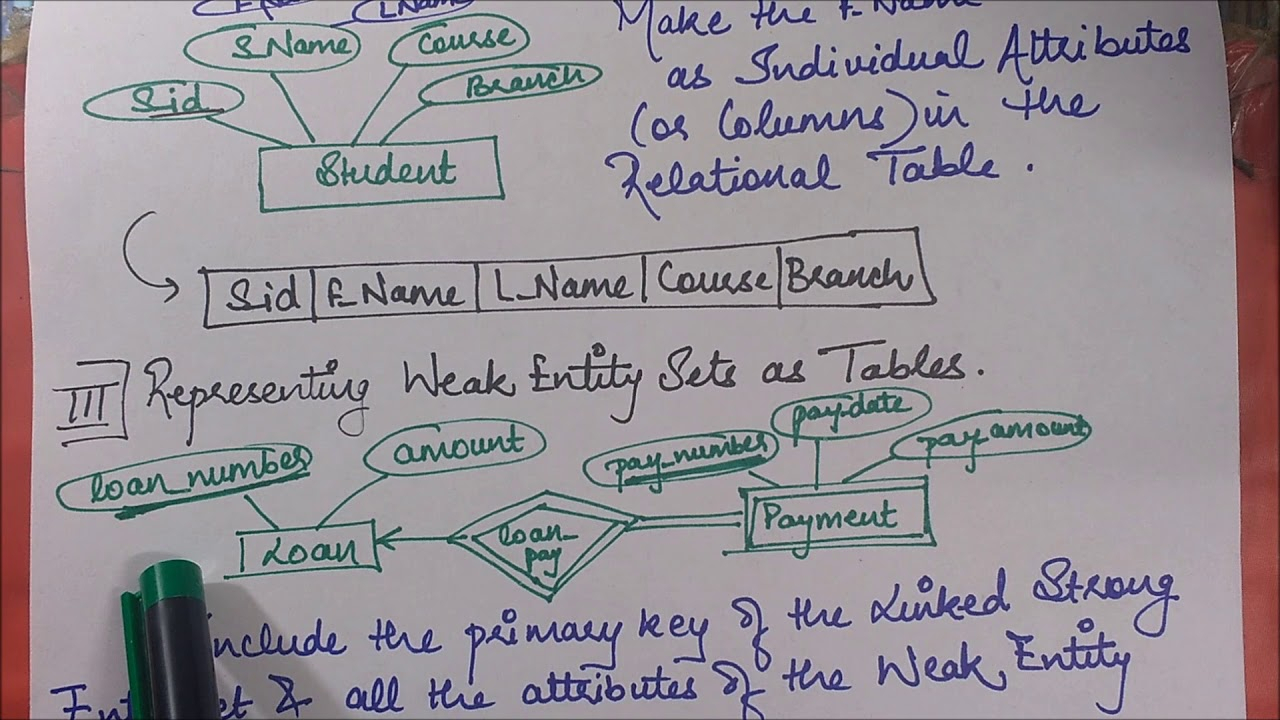 L_Name
Make the F_Name
S_Name
Course
as Individual Attributes
Sid
Branch
(or Columns) in the
Student
Relational Table.
Sid F_Name L_Name Course Branch
III Representing Weak Entity Sets as Tables.
loan_number
amount
pay_number
pay_date
pay_amount
Loan
loan_pay
Payment
include the primary key of the Linked Strong
& all the attributes of the Weak Entity